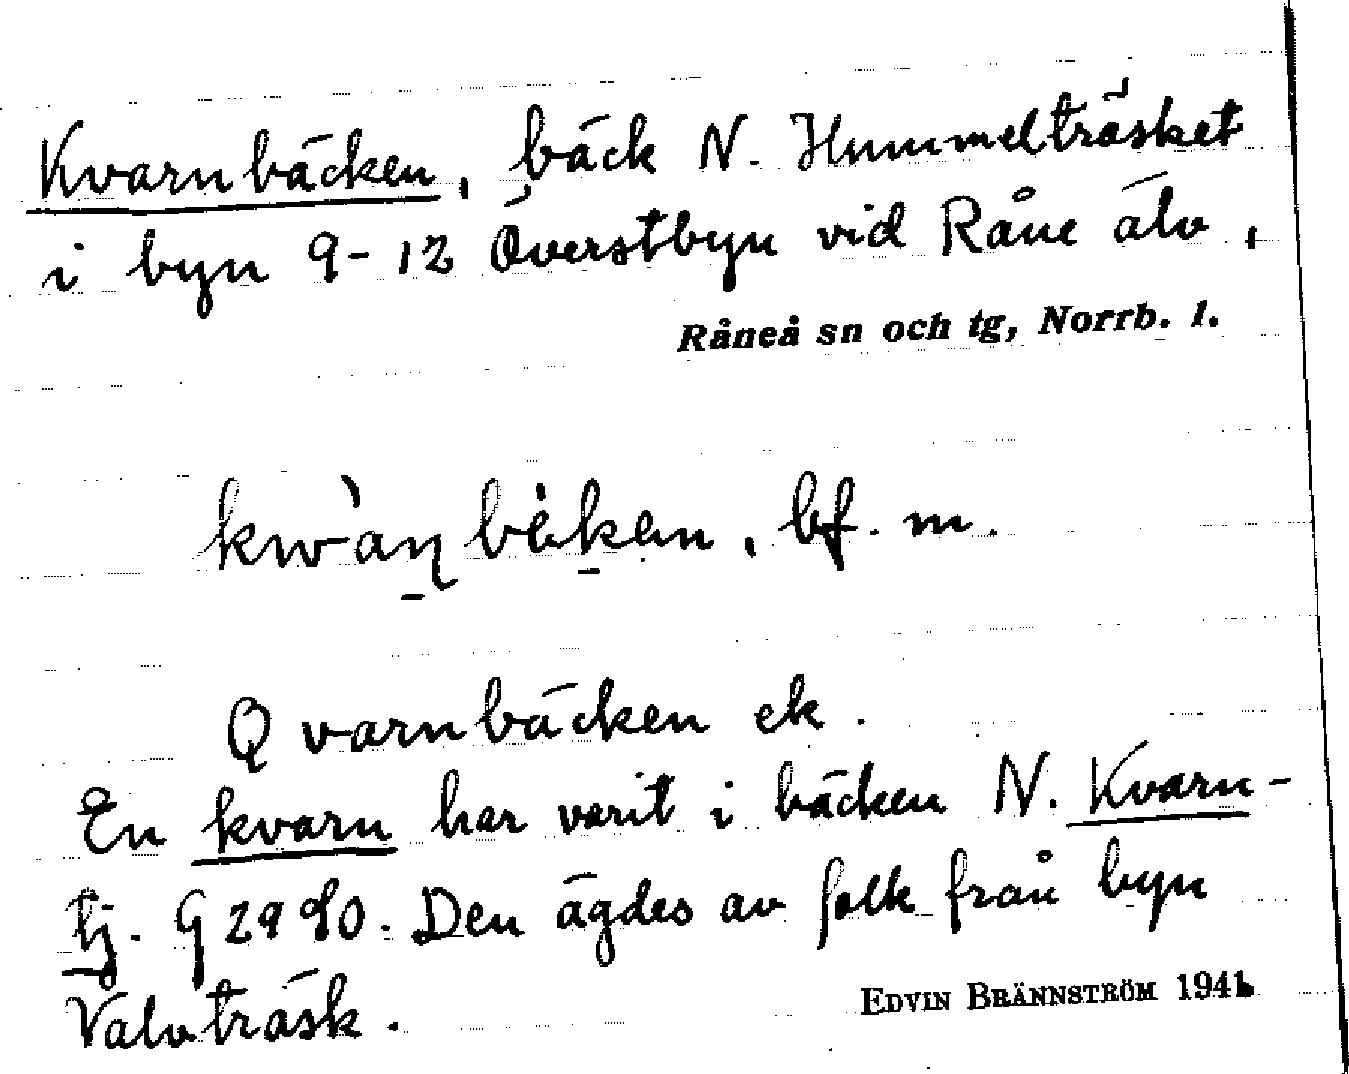 Kvarnbäcken, bäck N. Hummelträsket
i byn 9-12 Överstbyn vid Råne älv,
Råneå sn och tg, Norrb. l.
bf. m.
Qvarnbäcken ek.
En kvarn har varit i bäcken N. Kvarn-
tj. Den ägdes av folk från byn
Valvträsk.
EDVIN BRÄNNSTRÖM 1941